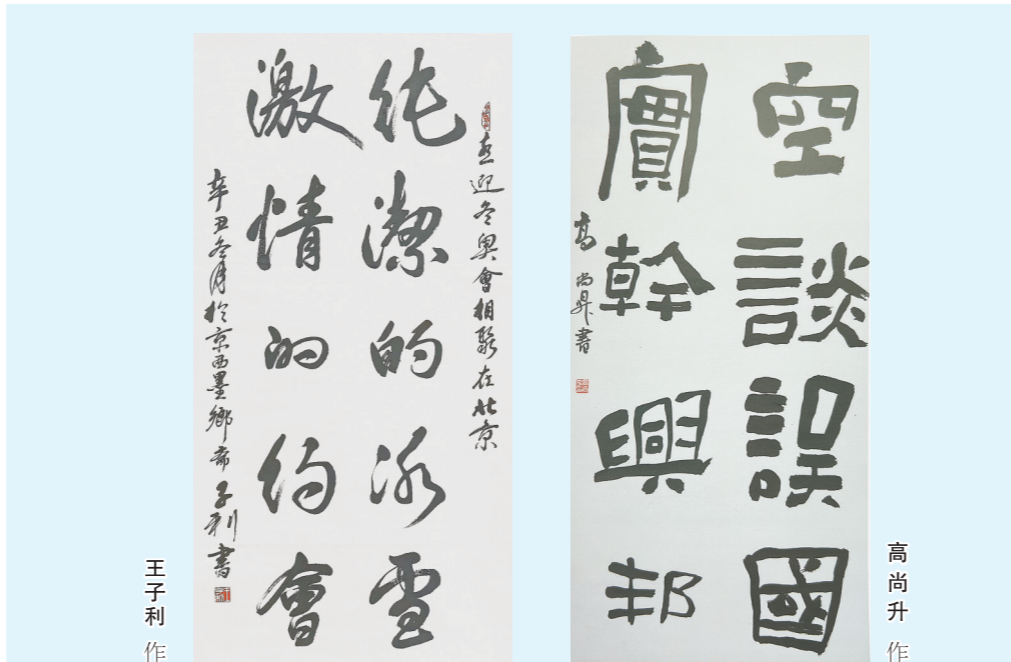 喜迎冬奥會相聚在北京
纯潔的冰雪
激情的约會
辛丑冬月於京西墨鄉齋子利書
王子利 作
空談誤國
實幹興邦
高尚昇書
高尚升 作